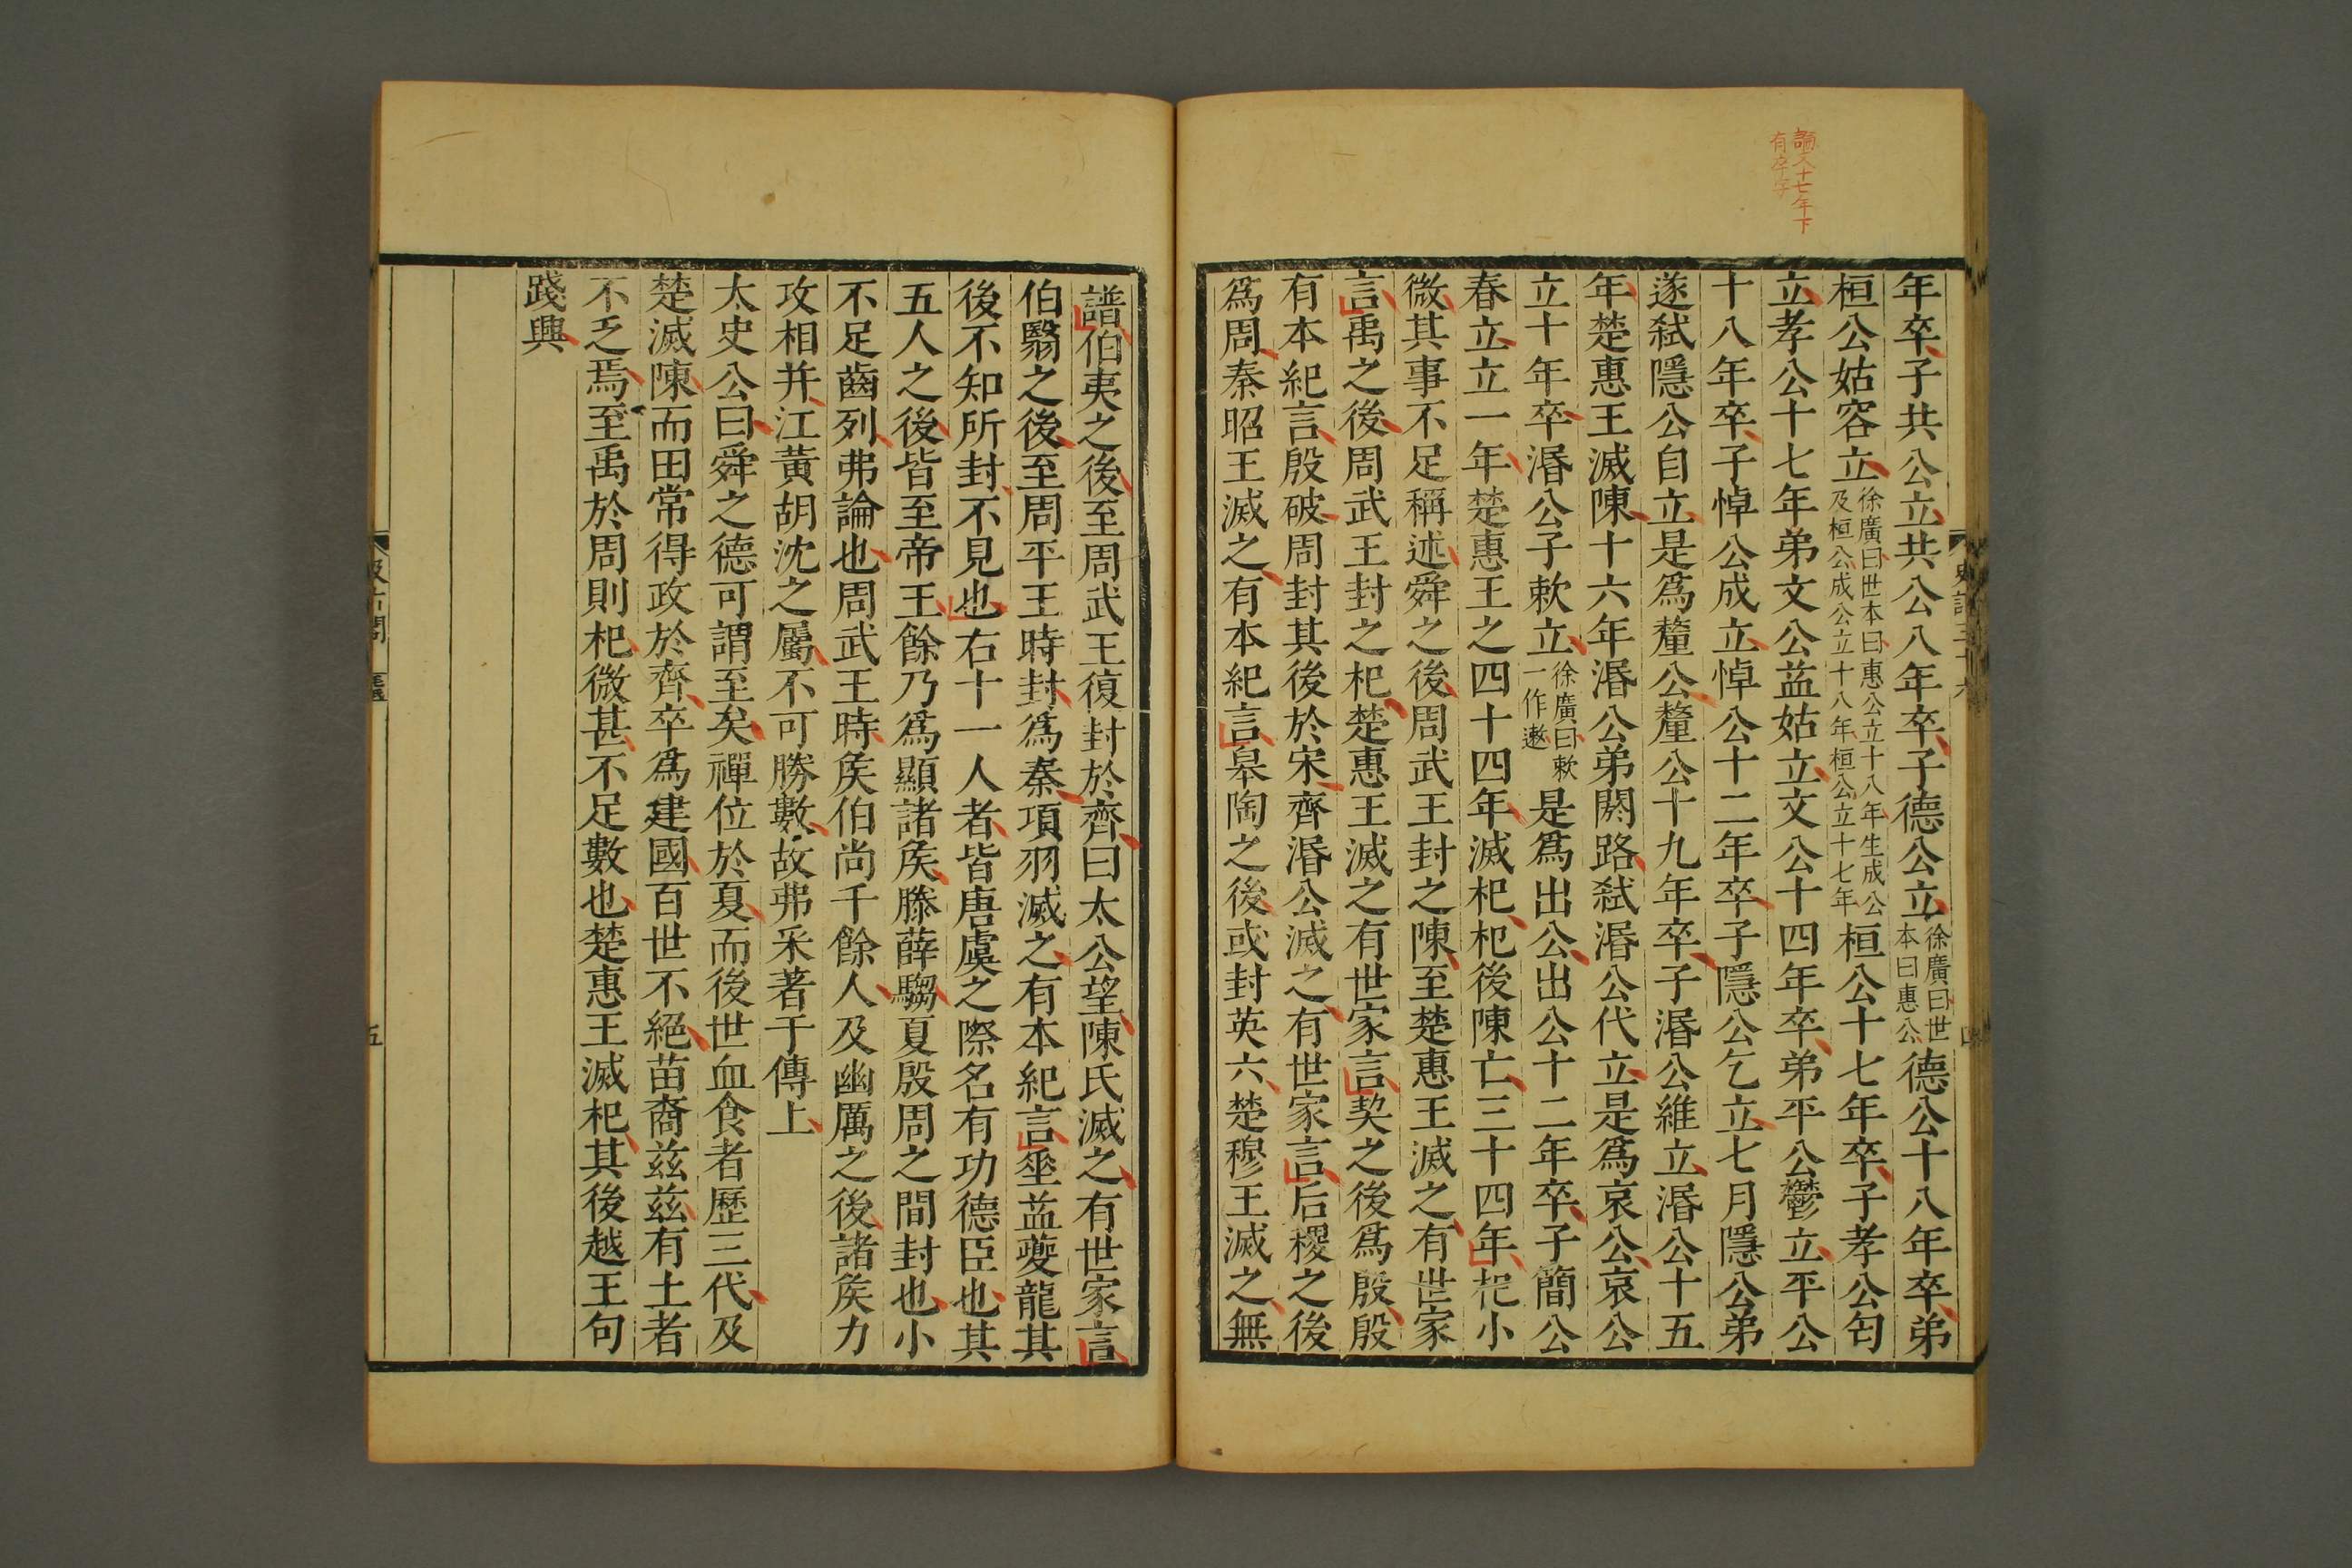 年卒子共公立共公八年卒子德公立徐廣曰世本曰惠公德公十八年卒弟
桓公姑容立徐廣曰世本曰惠公立十八年生成公及桓公成公立十八年桓公立十七年桓公十七年卒子孝公匄
立孝公十七年弟文公益姑立文公十四年卒弟平公鬱立平公
十八年卒子悼公成立悼公十二年卒子隱公乞立七月隱公弟
遂弒隱公自立是爲釐公釐公十九年卒子湣公維立湣公十五
年楚惠王滅陳十六年湣公弟閼路弒湣公代立是爲哀公哀公
立十年卒湣公子欶立徐廣曰欶一作遬是爲出公出公十二年卒子簡公
春立立一年楚惠王之四十四年滅杞杞後陳亡三十四年杞小
微其事不足稱述舜之後周武王封之陳至楚惠王滅之有世家
言禹之後周武王封之杞楚惠王滅之有世家言契之後爲殷殷
有本紀言殷破周封其後於宋齊湣公滅之有世家言后稷之後
爲周秦昭王滅之有本紀言皋陶之後或封英六楚穆王滅之無
譜伯夷之後至周武王復封於齊曰太公望陳氏滅之有世家言
伯翳之後至周平王時封爲秦項羽滅之有本紀言垂益夔龍其
後不知所封不見也右十一人者皆唐虞之際名有功德臣也其
五人之後皆至帝王餘乃爲顯諸矦滕薛騶夏殷周之間封也小
不足齒列弗論也周武王時矦伯尚千餘人及幽厲之後諸矦力
攻相并江黃胡沈之屬不可勝數故弗采著于傳上
太史公曰舜之德可謂至矣禪位於夏而後世血食者歷三代及
楚滅陳而田常得政於齊卒爲建國百世不絕苗裔兹兹有土者
不乏焉至禹於周則杞微甚不足數也楚惠王滅杞其後越王句
踐興
五